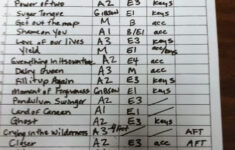 Power of two A2 E3 Keys
Sugar Tongue Gibson E1 Keys
Get out the map M B acc
Shame on you A1 B/E1 acc
Love of our lives A3 E3 Keys
Yield M E1 acc/Keys
Everything In Its own time A2 E4 acc
Daisy Queen A3 M acc
Fill it up Again E2 E3 Keys
Moment of Forgiveness Gibson E1 Keys
Pendulum Swinger A2 E3
Land of Canaan A1 E1
Ghost A2 E3
Crying in the Wilderness A3 E3 AFT
Closer A2 E3 acc AFT